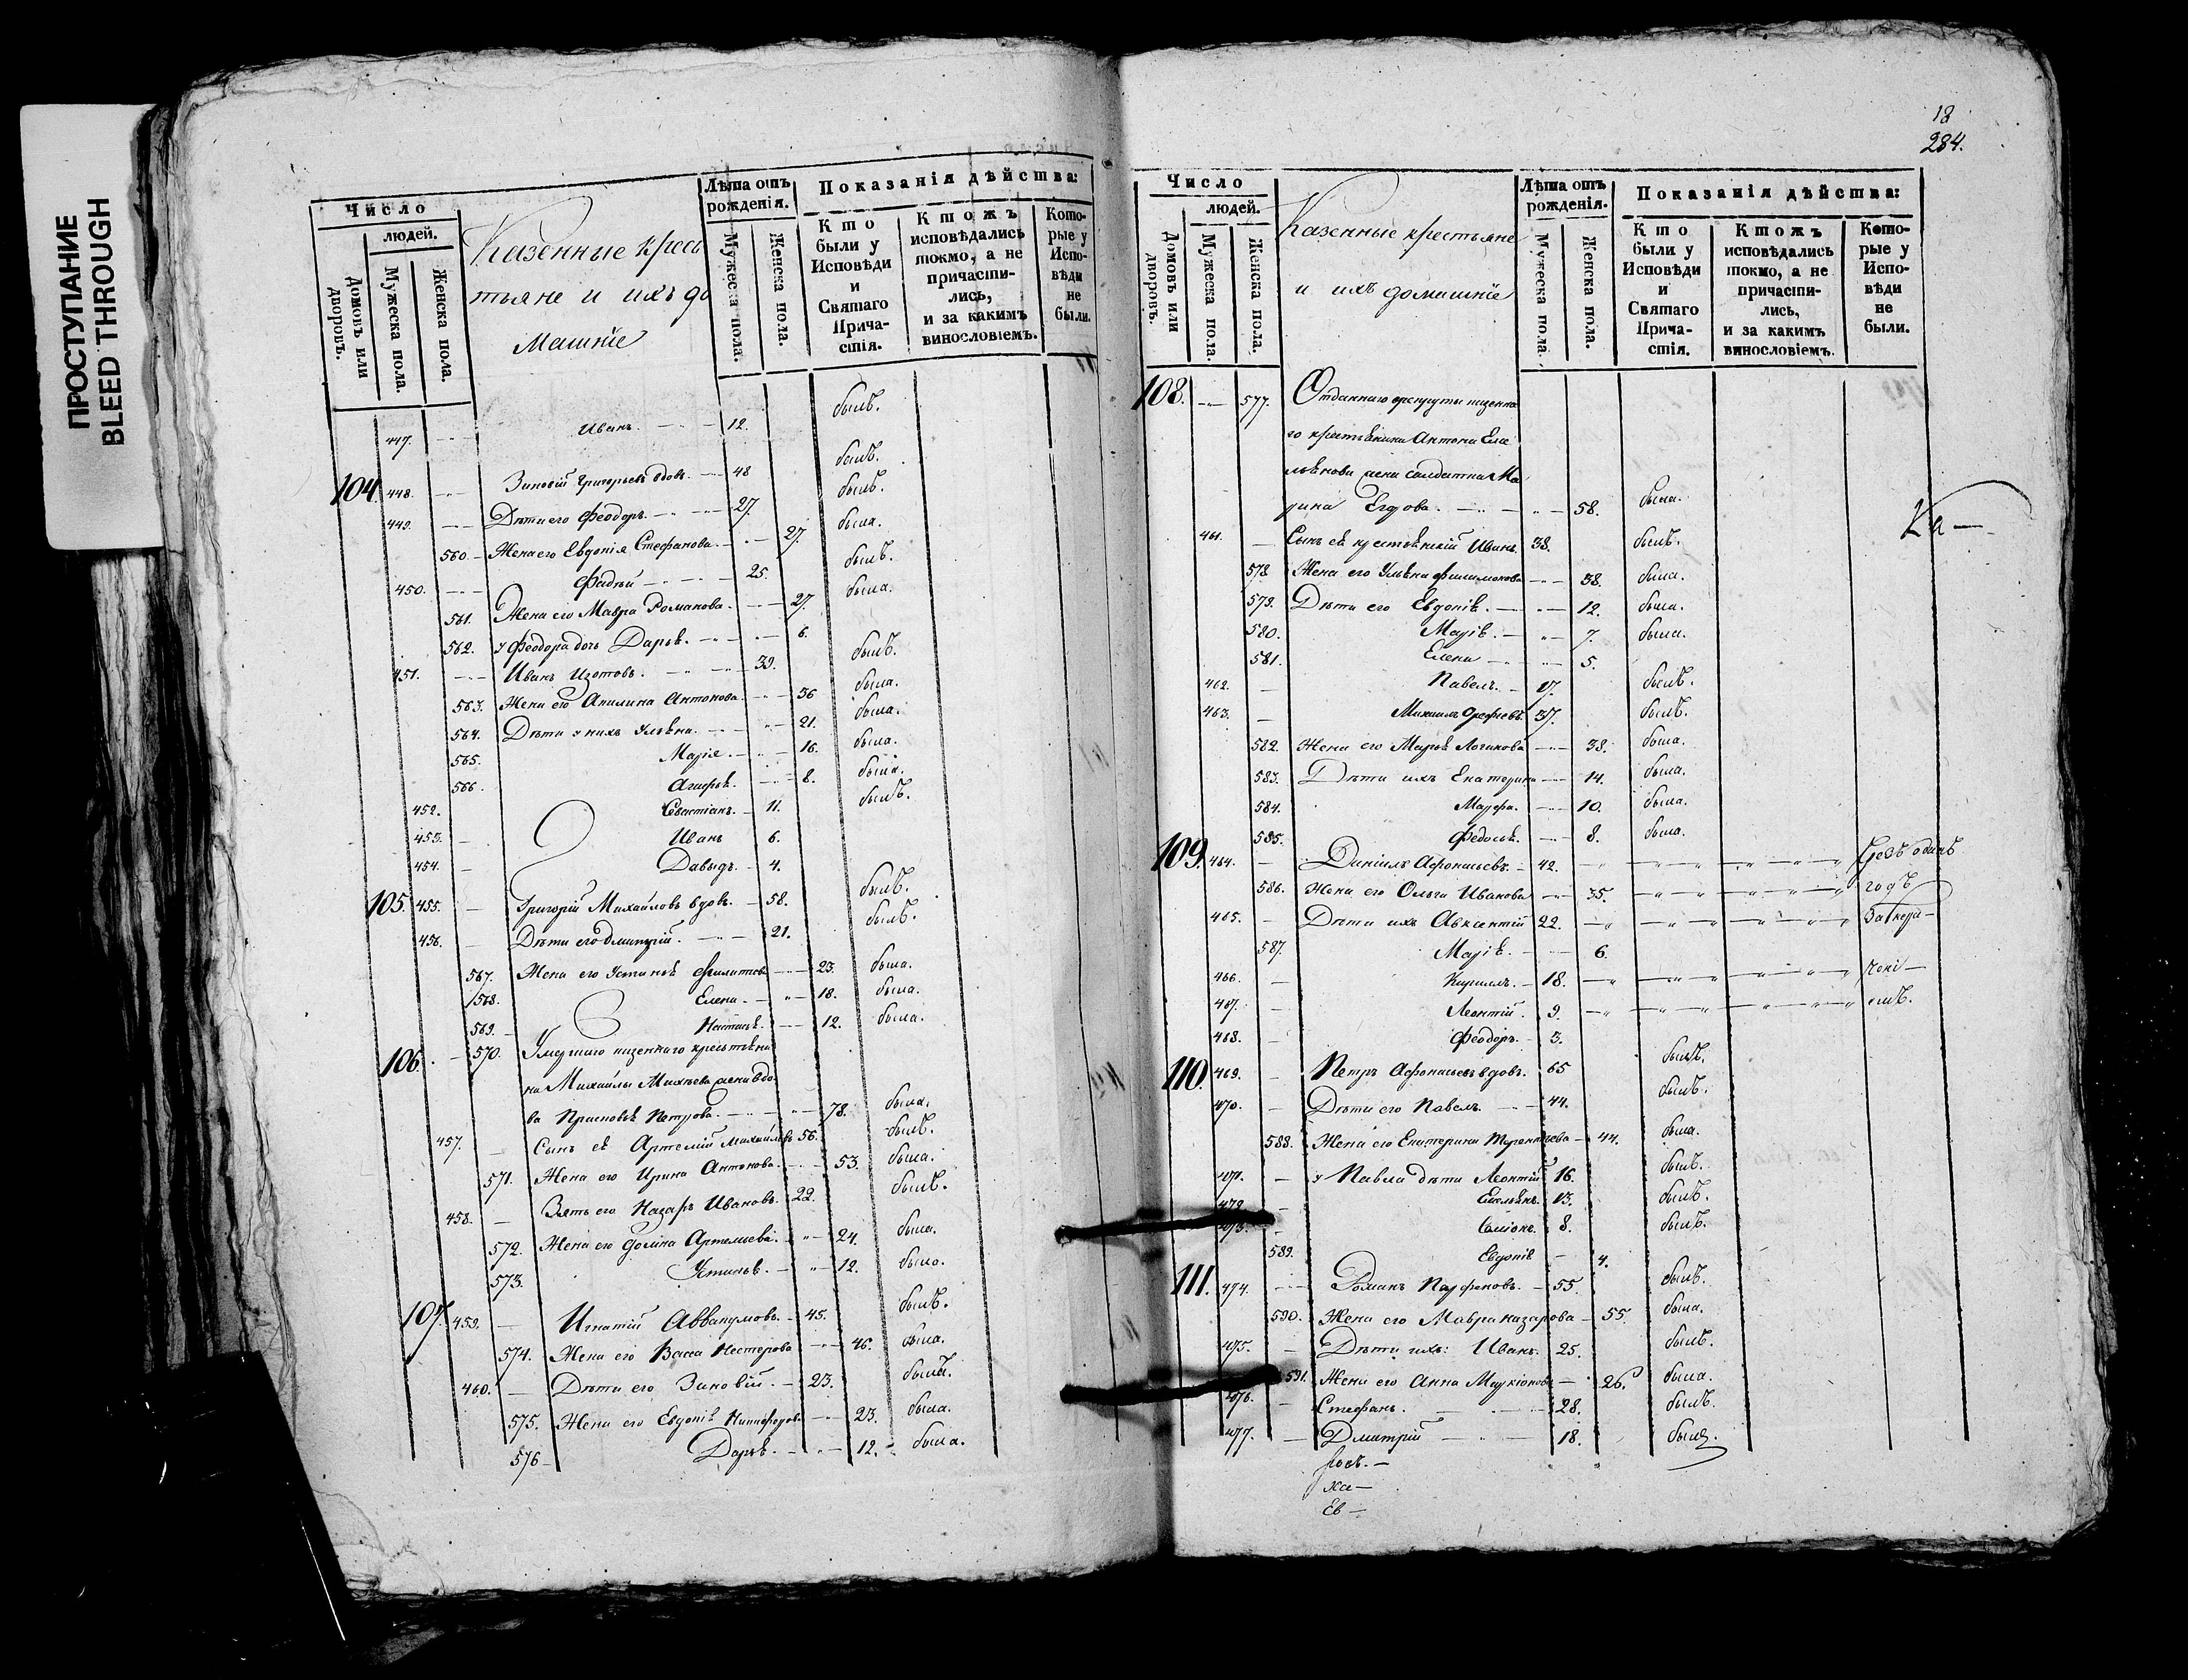 ПРОСТУПАНИЕ
BLEED THROUGH
Число
людей.
Домовъ или дворовъ.
Мужеска пола.
Женска пола.
Казенные кресть
тьяне и ихъ до
машніе
Лѣта отъ рожденія.
Мужеска пола.
Женска пола.
Показанія дѣйства:
Кто были у Исповѣди и Святаго Причастія.
Ктожъ исповѣдались токмо, а не причастились, и за какимъ винословіемъ.
Которые у Исповѣди не были.
447. Иванъ. 12. былъ.
104. 448. Зиновій Григорьевъ вдовъ. 48 былъ.
449. Дѣти его Феодоръ. 27. былъ.
560 Жена его Евдокія Стефанова. 27. была.
450. Фадѣй 25. былъ.
561. Жена его Мавра Романова. 27. была.
562. у Феодора дочь Дарья. 6.
451. Иванъ Изотовъ. 39. былъ.
563. Жена его Акилина Антонова. 36 была.
564. Дѣти у нихъ Ульяна. 21. была.
565. Марія. 16. была.
566. Агафья. 8. была.
452. Севастіанъ. 11. былъ.
453. Иванъ 6.
454. Давыдъ. 4.
105. 455. Григорій Михайловъ вдовъ. 58. былъ.
456. Дѣти его Дмитрій. 21. былъ.
567. Жена его Устинья Филатова 23. была.
568. Елена. 18. была.
569. Настасья. 12. была.
106. 570. Умершаго казеннаго крестьяни
на Михайлы Михѣева жена вдо
ва Прасковья Петрова. 78. была.
457. Сынъ ея Артемій Михайловъ 56. былъ.
571. Жена его Ирина Антонова. 53. была.
458. Зять его Назаръ Ивановъ. 22. былъ.
572. Жена его Артемьева. 24. была.
573. Устинья. 12. была.
107. 459. Игнатій Аввакумовъ. 45. былъ.
574. Жена его Васса Нестерова 46. была.
460. Дѣти его Зиновій. 23. былъ.
575. Жена его Евдокія Никифорова 23. была.
576 Дарья. 12. была.
18
284.
Число
людей.
Домовъ или дворовъ.
Мужеска пола.
Женска пола.
Казенные крестьяне
и ихъ домашніе
Лѣта отъ рожденія.
Мужеска пола.
Женска пола.
Показанія дѣйства:
Кто были у Исповѣди и Святаго Причастія.
Ктожъ исповѣдались токмо, а не причастились, и за какимъ винословіемъ.
Которые у Исповѣди не были.
108. 577. Отданнаго врекруты казенна
го крестьянина Антона Еме
льянова жена солдатка Ма
рина Егорова. 58. была.
Ка
461. Сынъ ея крестьянскій Иванъ 38. былъ.
578 Жена его Ульяна Филимонова 38. была.
579. Дѣти его Евдокія. 12. была.
580. Марія. 7. была.
581. Елена 5.
462. Павелъ. 17. былъ.
463. Михаилъ Орефьевъ. 37. былъ.
582. Жена его Марья Логинова 38. была.
583. Дѣти ихъ Екатерина 14. была.
584. Марфа. 10. была.
585. Федосья. 8. была.
109. 464. Даніилъ Афонасьевъ. 42. Чрезъ одинъ
586. Жена его Ольга Иванова 35. годъ
465. Дѣти ихъ Авксентій 22. За нера
587. Марія. 6.
466. Кириллъ. 18. дені
467. Леонтій. 9. емъ.
468. Феодоръ. 3.
110. 469. Петръ Афонасьевъ вдовъ. 65 былъ.
470. Дѣти его Павелъ. 44. былъ.
588. Жена его Екатерина Терентьева 44. была.
471. у Павла дѣти Леонтій 16. былъ.
472 Емельянъ. 13. былъ.
473. Симіонъ. 8. былъ.
589. Евдокія 4.
111. 474. Романъ Парфеновъ. 55. былъ.
590. Жена его Мавра Назарова 55. была.
475. Дѣти ихъ: Иванъ. 25. былъ.
591. Жена его Анна Маркіонова 26. была.
476. Стефанъ. 28. былъ.
477. Дмитрій 18. былъ.